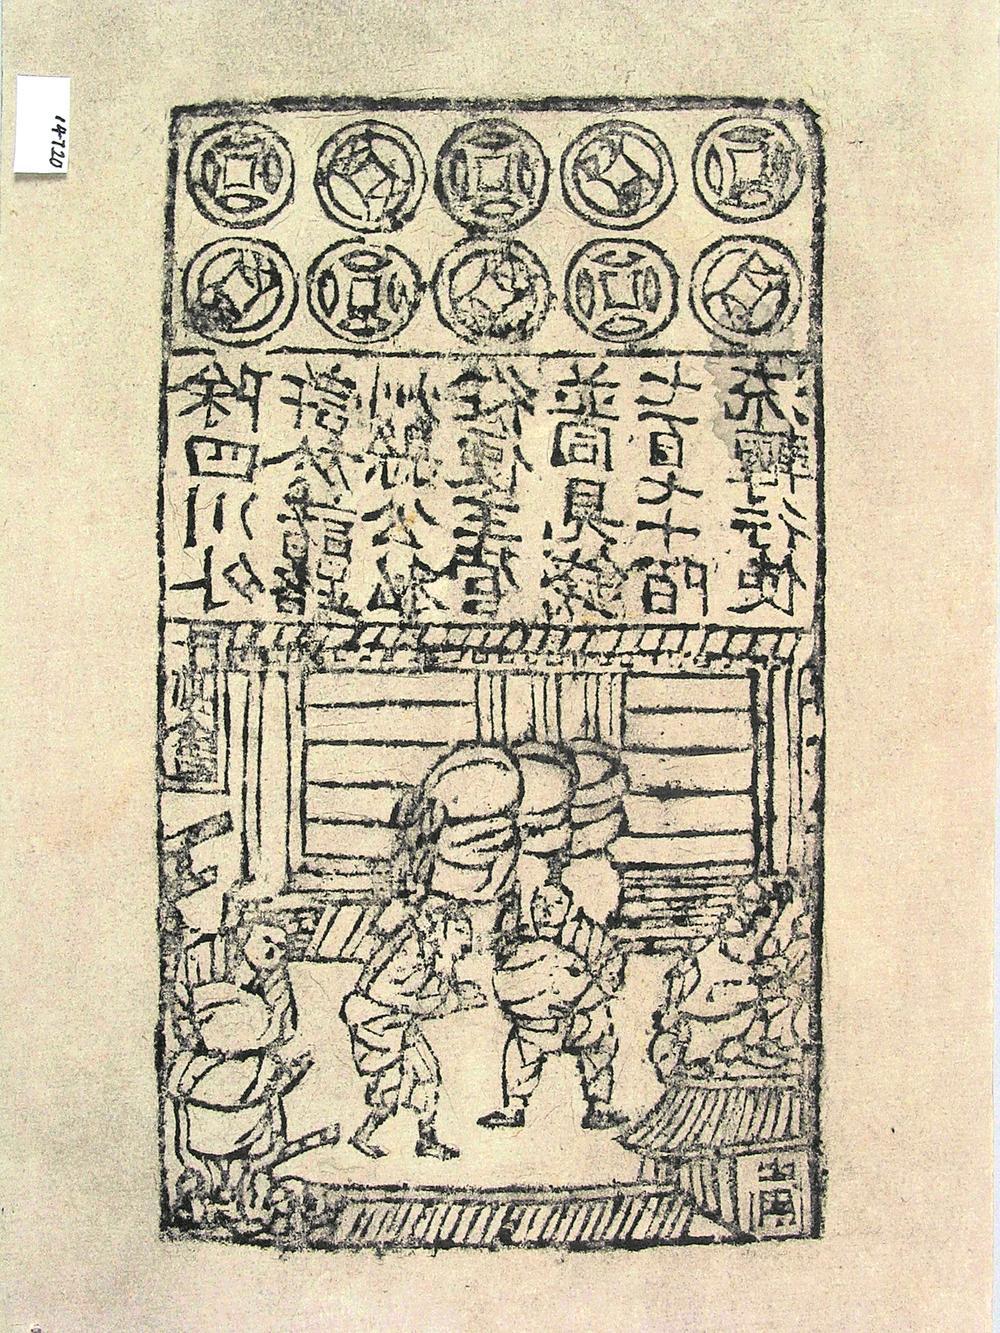 除四川外
許於諸路
州縣公私
從便主管
並同見錢
七百七十陌
流轉行使
14-720